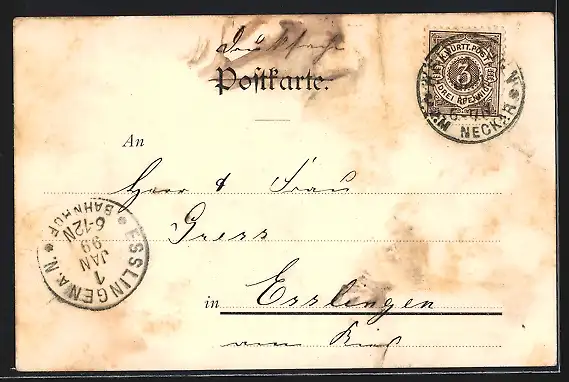 Drucksache
Postkarte.
K. WÜRTT. POST
3
DREI PFENNIG
NECKAR
An
Herr & Frau
Gress
in Esslingen
am Kies
ESSLINGEN A. N.
1 JAN 99
6-12N
BAHNHOF